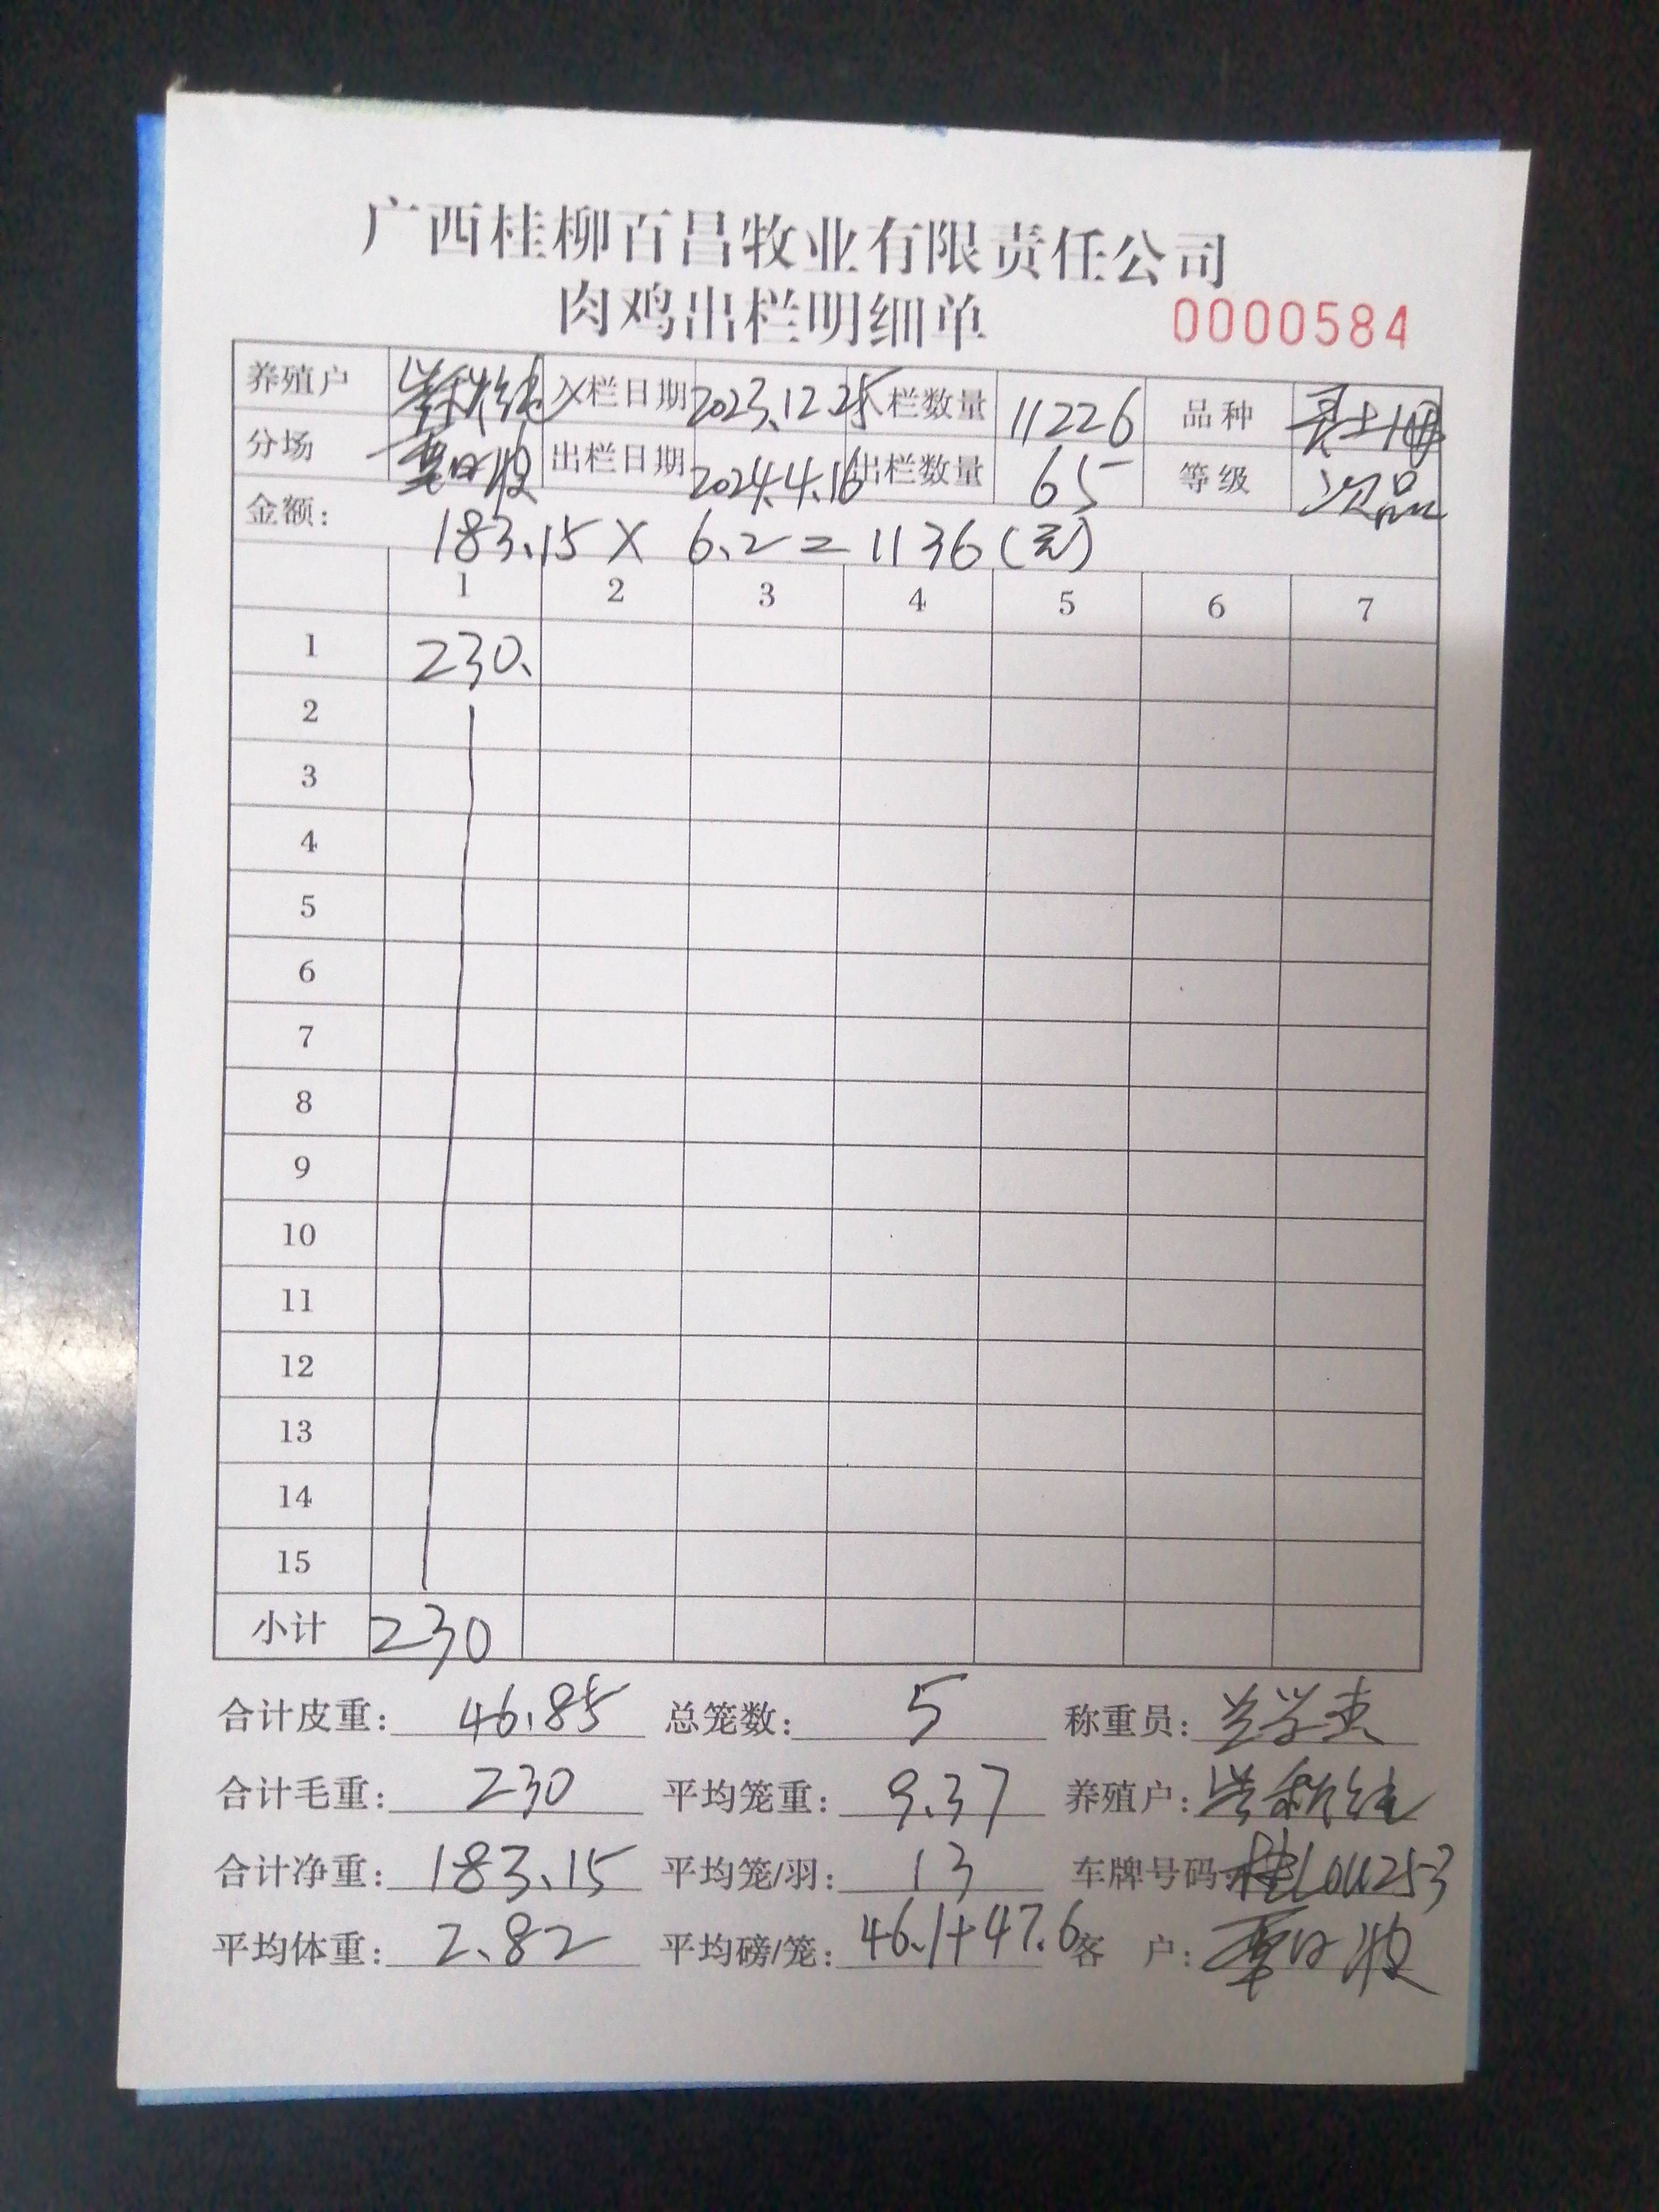 广西桂柳百昌牧业有限责任公司
肉鸡出栏明细单 0000584
养殖户 入栏日期 2023.12.25 入栏数量 11226 品种
分场 覃日波 出栏日期 2024.4.16 出栏数量 65 等级 次品
金额: 183.15 × 6.2 = 1136(元)
1 2 3 4 5 6 7
1 230.
2
3
4
5
6
7
8
9
10
11
12
13
14
15
小计 230
合计皮重: 46.85 总笼数: 5 称重员:
合计毛重: 230 平均笼重: 9.37 养殖户:
合计净重: 183.15 平均笼/羽: 13 车牌号码
平均体重: 2.82 平均磅/笼: 46.1+47.6 客 户: 覃日波